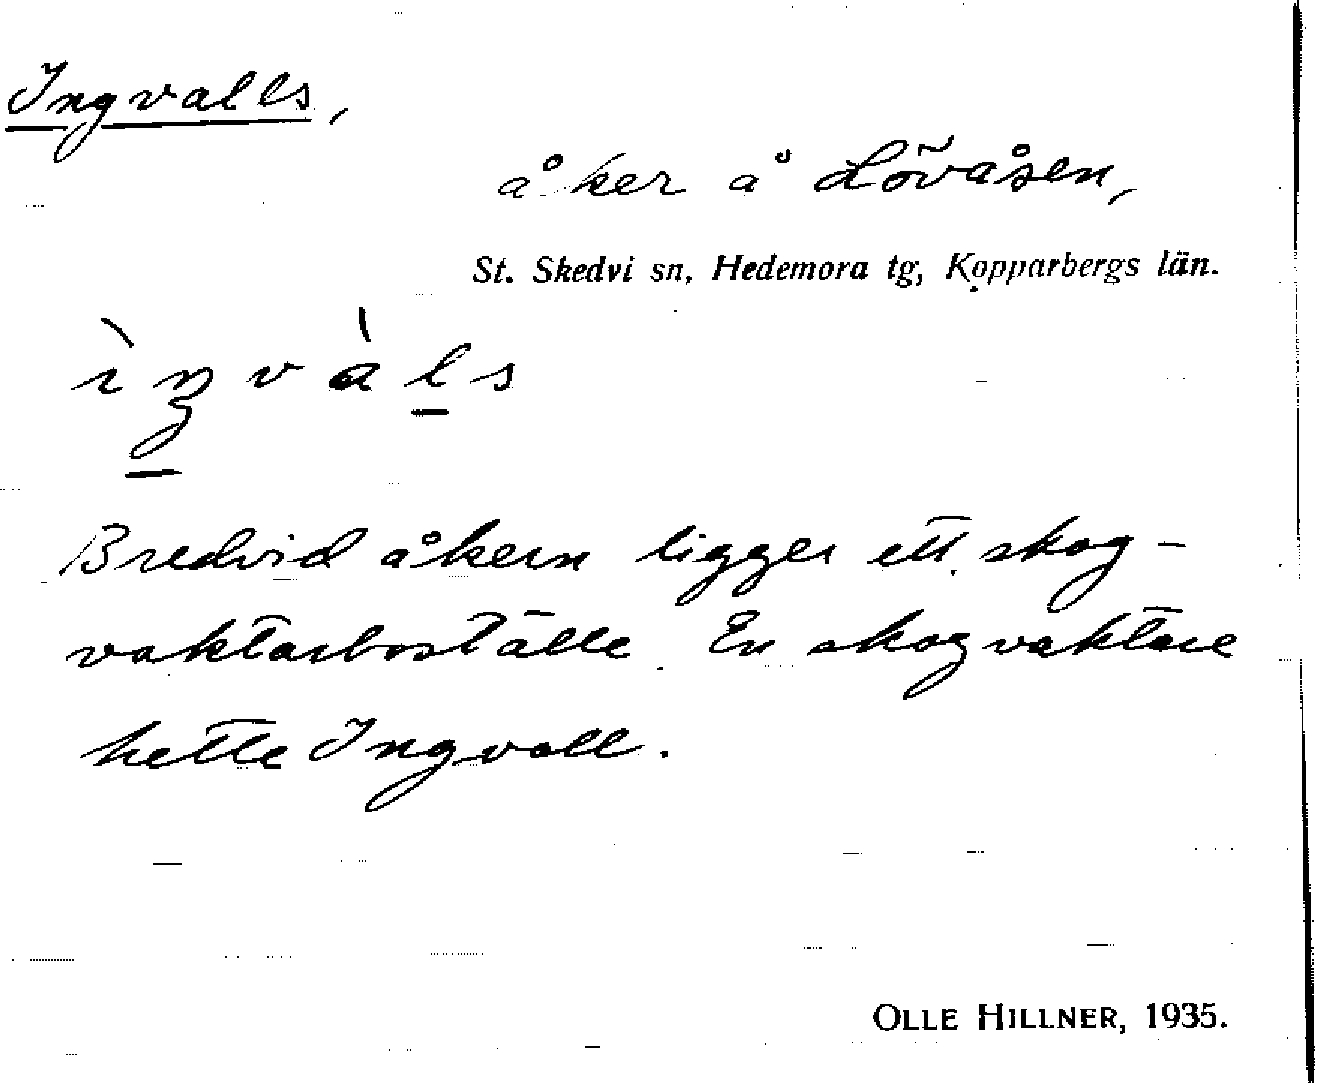 Ingvalls,
åker å Lövåsen,
St. Skedvi sn, Hedemora tg, Kopparbergs län.
ìŋvàls
Bredvid åkern ligger ett skog-
vaktarboställe. En skogvaktare
hette Ingvall.
OLLE HILLNER, 1935.